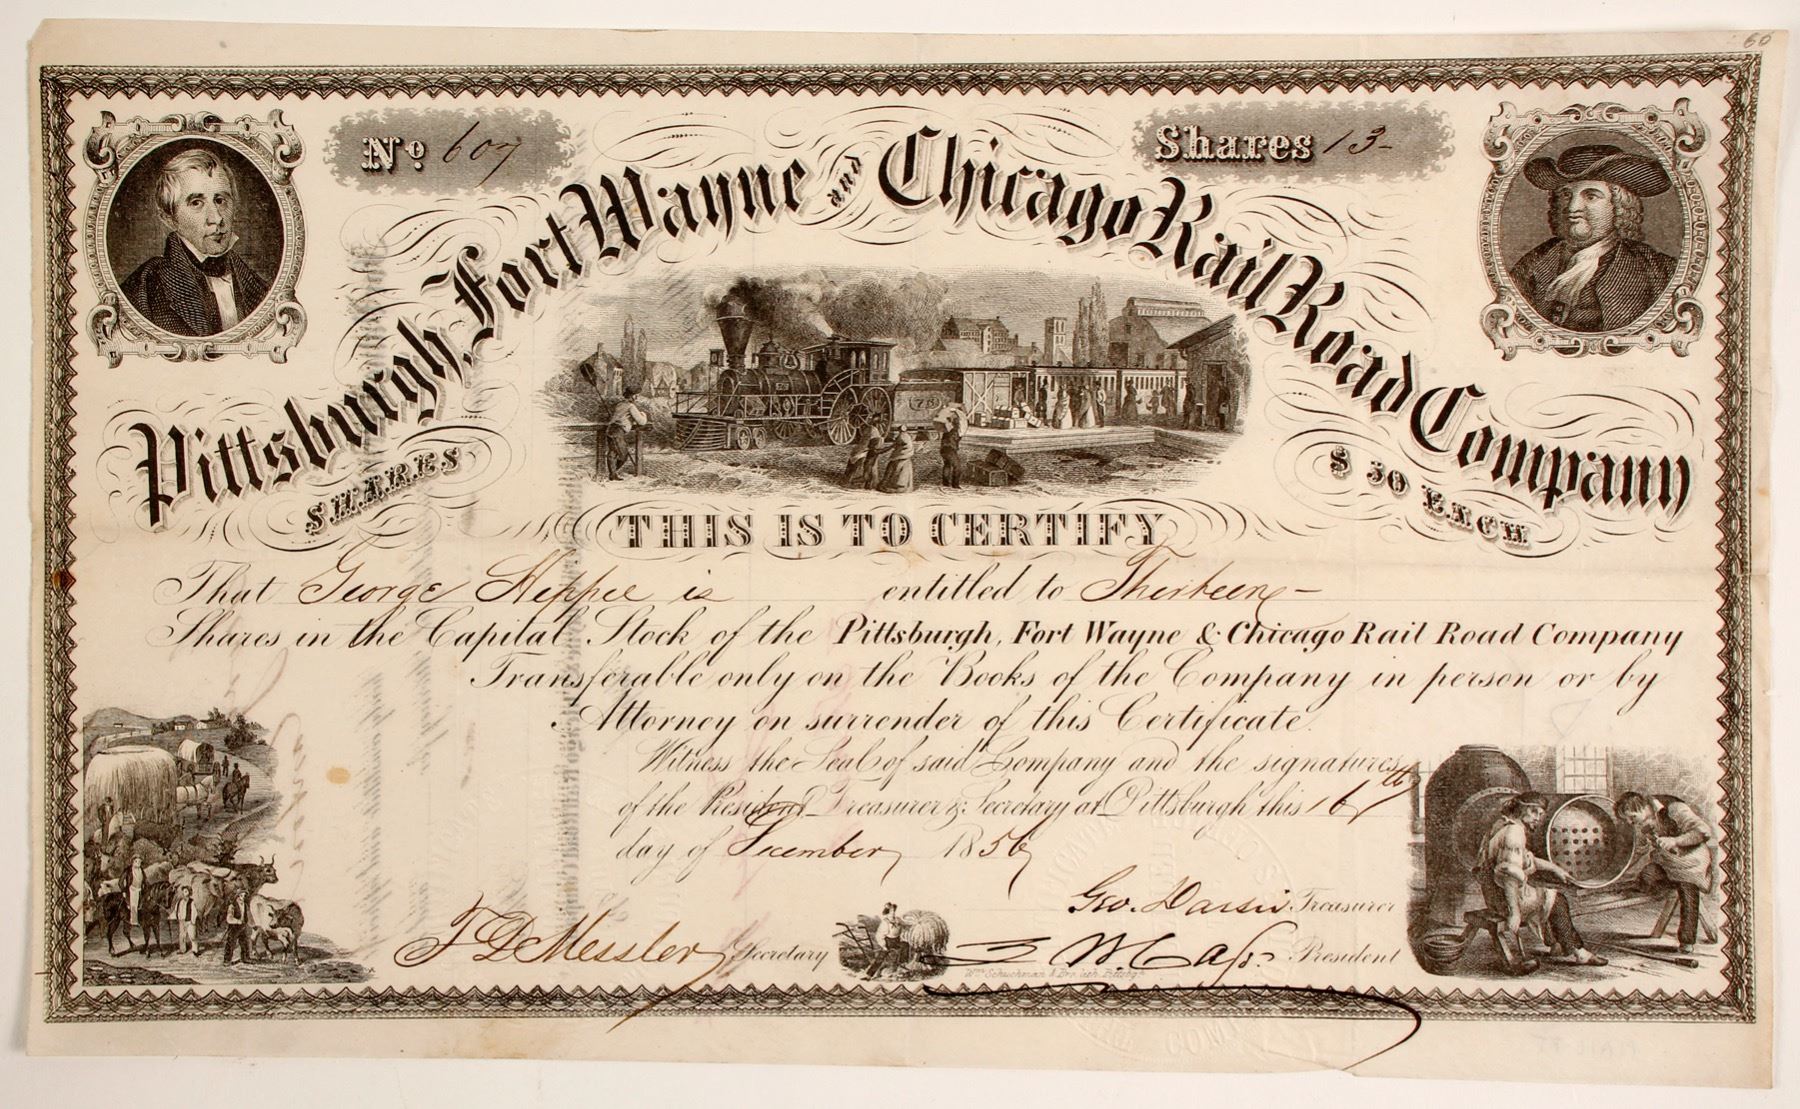 60
No. 607
Shares 13-
Pittsburgh, Fort Wayne and Chicago Rail Road Company
SHARES $50 EACH
78
THIS IS TO CERTIFY
That George Heppee is entitled to Thirteen-
Shares in the Capital Stock of the Pittsburgh, Fort Wayne & Chicago Rail Road Company
Transferable only on the Books of the Company in person or by
Attorney on surrender of this Certificate.
Witness the Seal of said Company and the signatures
of the President Treasurer & Secretary at Pittsburgh this 16th
day of December 1856
Geo. Darsie Treasurer
J D Messler Secretary
President
Wm. Schuchman & Bro. lith. Pittsbg.